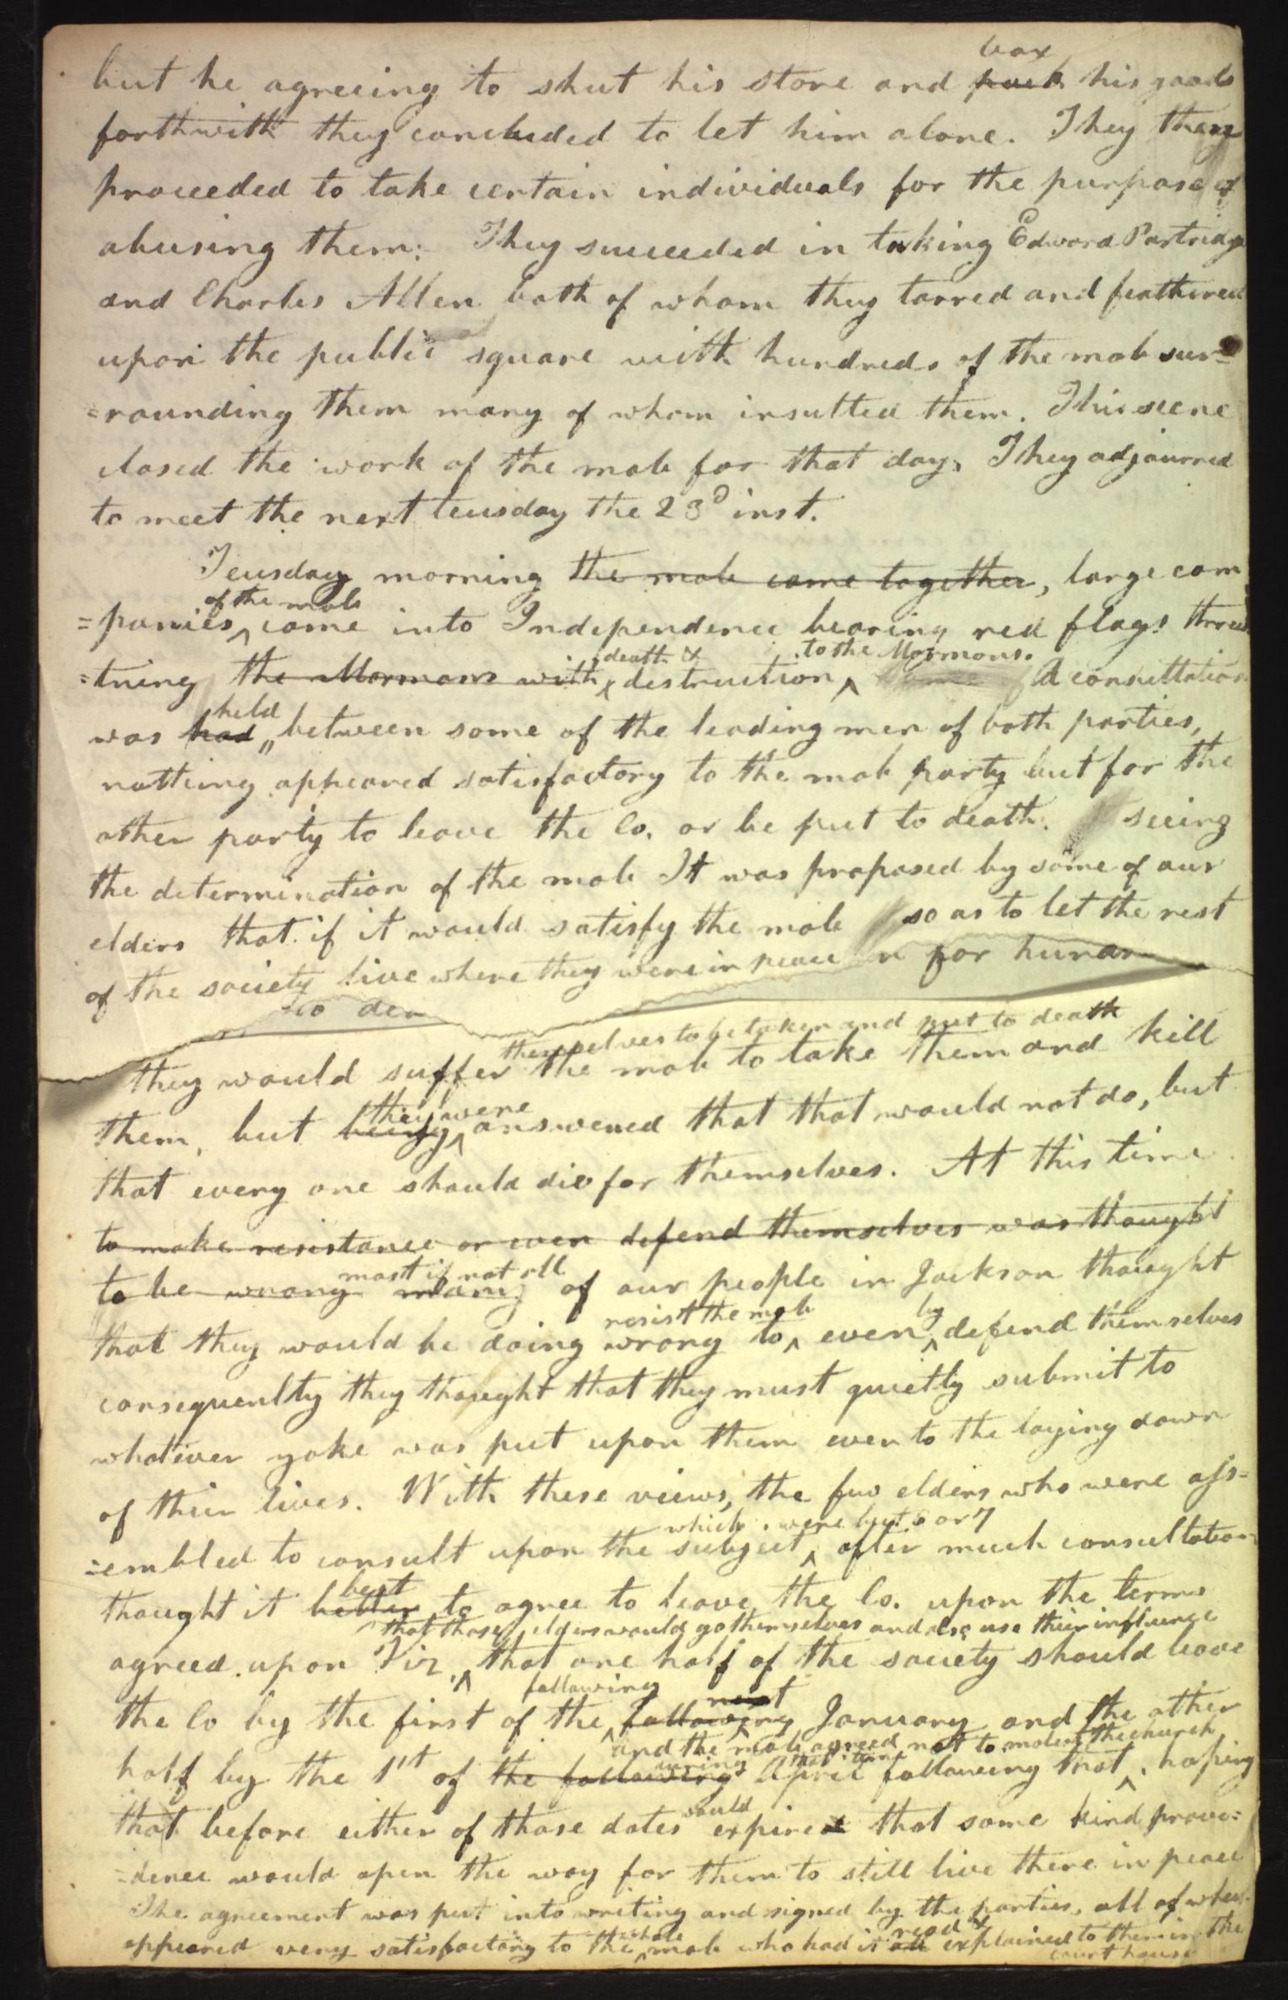 box
but he agreeing to shut his store and pack his goods
forthwith they concluded to let him alone. They then
proceeded to take certain individuals for the purpose of
abusing them: They succeeded in taking Edward Partridge
and Charles Allen both of whom they tarred and feathered
upon the public square with hundreds of the mob sur=
=rounding them many of whom insulted them. This scene
closed the work of the mob for that day, They adjourned
to meet the next teusday the 23d inst.
Teusday morning the mob came together, large com
of the mob
=panies came into Independence bearing red flags threa
death & to the Mormons.
=tning the Mormons with destruction, A consultation
held
was had between some of the leading men of both parties,
nothing appeared satisfactory to the mob party but for the
other party to leave the Co. or be put to death. seeing
the determination of the mob It was proposed by some of our
elders that if it would satisfy the mob so as to let the rest
of the society live where they were in peace for human
to
themselves to be taken and put to death
they would suffer the mob to take them and kill
they were
them, but being answered that that would not do, but
that every one should die for themselves. At this time
to make resistance or even defend themselves was thought
most if not all
to be wrong many of our people in Jackson thought
resist the mob by
that they would be doing wrong to even defend themselves
consequenlty they thought that they must quietly submit to
whatever yoke was put upon them even to the laying down
of their lives. With these views, the few elders who were ass=
which were but 6 or 7
=embled to consult upon the subject, after much consultation
best
thought it better to agree to leave the Co. upon the terms
that those elders would go themselves and also use their influence
agreed upon Viz. that one half of the society should leave
following next
the Co by the first of the following January and the other
and the mob agreed not to molest the church
during that time
half by the 1st of the following April following that, hoping
would
that before either of those dates expired that some kind provi=
=dence would open the way for them to still live there in peace
The agreement was put into writing and signed by the parties, all of which
whole read &
appeared very satisfactory to the mob who had it all explained to them in the
court house